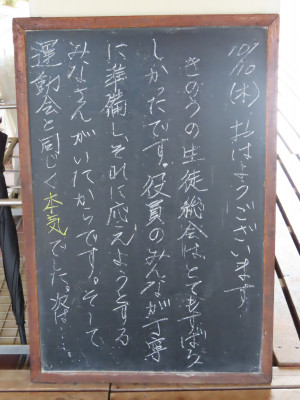 10/10(木) おはようございます。
きのうの生徒総会は、とてもすばら
しかったです。役員のみんなが丁寧
に準備し、それに応えようとする
みなさんがいたからです。そして
運動会と同じく本気でした。次は……